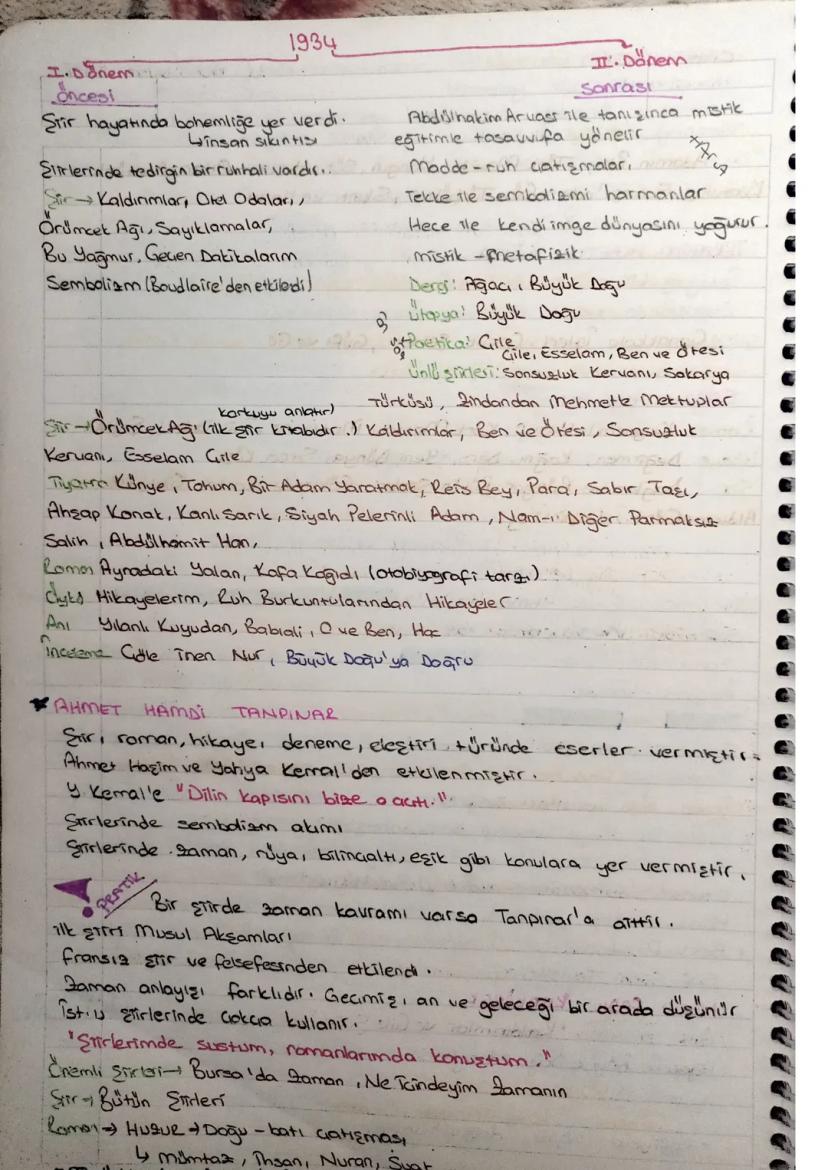 1934
I. Dönem
II. Dönem
Öncesi
Sonrası
Şiir hayatında bohemliğe yer verdi.
↳insan sıkıntısı
Şiirlerinde tedirgin bir ruhhali vardır..
Şiir → Kaldırımlar, Otel Odaları,
Örümcek Ağı, Sayıklamalar,
Bu Yağmur, Geçen Dakikalarım
Sembolizm (Boudlaire'den etkiledi)
Abdülhakim Arvasi ile tanışınca mistik
eğitimle tasavvufa yönelir
Madde-ruh çatışmaları
Tekke ile sembolizmi harmanlar
Hece ile kendi imge dünyasını yoğurur.
mistik-metafizik
Dergi: Ağaç, Büyük Doğu
Ütopya: Büyük Doğu
Poetika: Çile
Çile, Esselam, Ben ve Ötesi
Ünlü şiirleri: Sonsuzluk Kervanı, Sakarya
Türküsü, Zindandan Mehmet'e Mektuplar
korkuyu anlatır)
Şiir → Örümcek Ağı (ilk şiir kitabıdır.) Kaldırımlar, Ben ve Ötesi, Sonsuzluk
Kervanı, Esselam Çile
Tiyatro Künye, Tohum, Bir Adam Yaratmak, Reis Bey, Para, Sabır Taşı,
Ahşap Konak, Kanlı Sarık, Siyah Pelerinli Adam, Nam-ı Diğer Parmaksız
Salih, Abdülhamit Han,
Roman Aynadaki Yalan, Kafa Kağıdı (otobiyografi tarzı)
Öykü Hikayelerim, Ruh Burkuntularından Hikayeler
Anı Yılanlı Kuyudan, Babıali, O ve Ben, Hac
İnceleme Çöle İnen Nur, Büyük Doğu'ya Doğru
AHMET HAMDİ TANPINAR
Şiir, roman, hikaye, deneme, eleştiri türünde eserler vermiştir.
Ahmet Haşim ve Yahya Kemal'den etkilenmiştir.
Y Kemal'e "Dilin kapısını bize o açtı."
Şiirlerinde sembolizm akımı
Şiirlerinde zaman, rüya, bilinçaltı, eşik gibi konulara yer vermiştir.
! PRATİK
Bir şiirde zaman kavramı varsa Tanpınar'a aittir.
ilk şiiri Musul Akşamları
Fransız şiir ve felsefesinden etkilendi.
Zaman anlayışı farklıdır. Geçmişi, an ve geleceği bir arada düşünür
İst.u şiirlerinde çokça kullanır.
"Şiirlerimde sustum, romanlarımda konuştum."
Önemli Şiirleri → Bursa'da Zaman, Ne İçindeyim Zamanın
Şiir → Bütün Şiirleri
Roman → Huzur → Doğu-batı çatışması
↳ Mümtaz, İhsan, Nuran, Suat